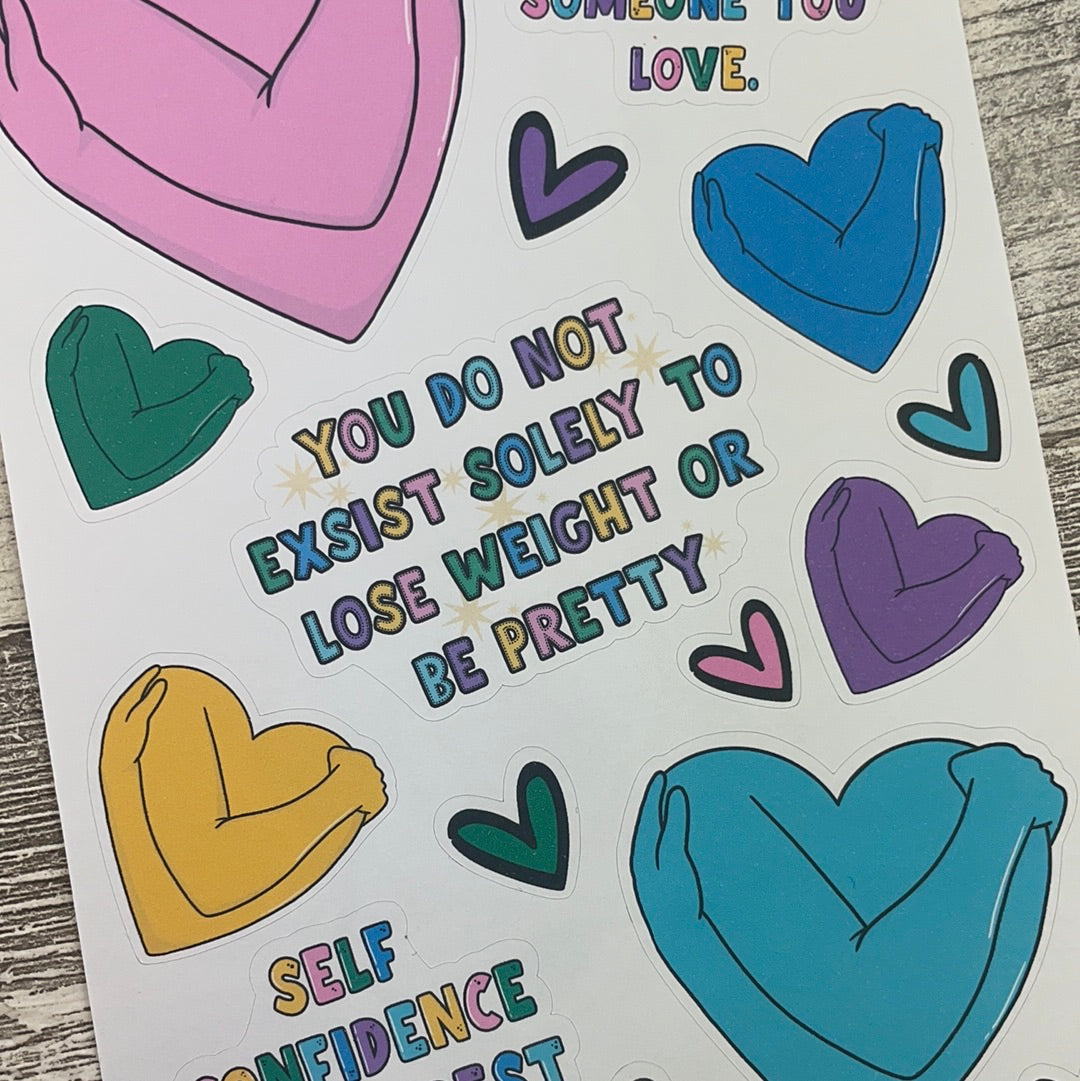 SOMEONE YOU
LOVE.
YOU DO NOT
EXSIST SOLELY TO
LOSE WEIGHT OR
BE PRETTY
SELF
CONFIDENCE